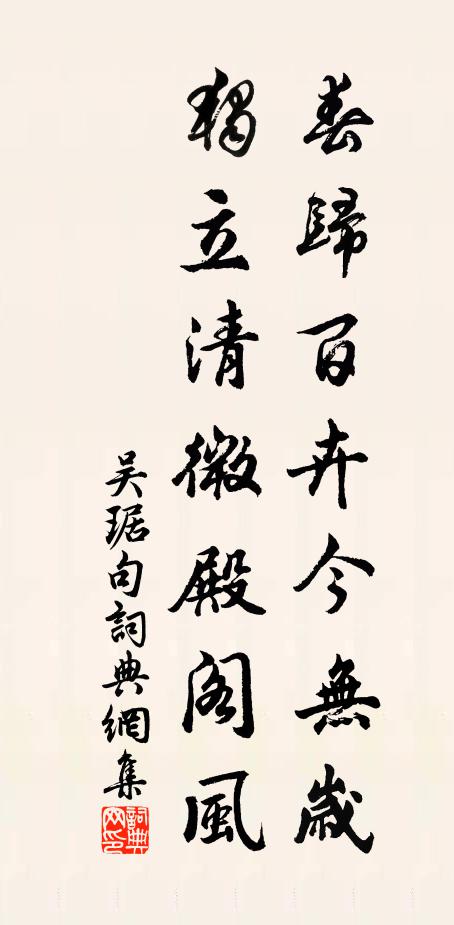 春歸百卉今無歲
獨立清微殿閣風
吴琚句詞典網集
詞典網印